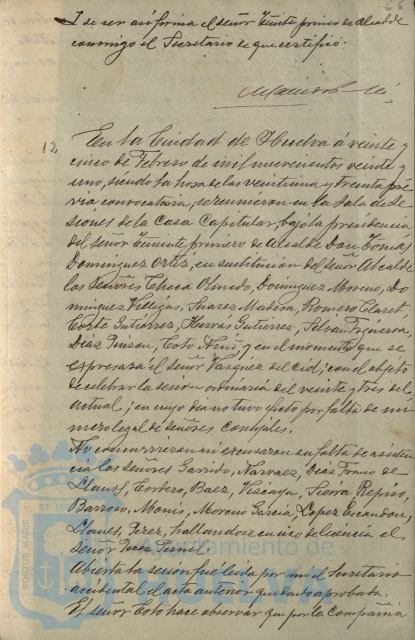 I de ser así firma el señor Teniente primero de Alcalde
conmigo el Secretario de que certifico.
66
12
En la Ciudad de Huelva á veinte y
cinco de Febrero de mil novecientos veinte y
uno, siendo la hora de las veintiuna y treinta pré-
via convocatoria, se reunieron en la Sala de Se-
siones de la Casa Capitular, bajo la presidencia
del señor Teniente primero de Alcalde Don Tomas
Dominguez Ortiz, en sustitucion del señor Alcalde
los Señores Checa Olmedo, Dominguez Moreno, Do-
minguez Villegas, Suarez Madera, Romero Claret,
Corte Gutierrez, Gutierrez, Figueroa,
Diaz Pinzon, Coto y en el momento que se
expresará el señor Vazquez del Cid, con el objeto
de celebrar la sesion ordinaria del veinte y tres del
actual, en cuyo dia no tuvo efecto por falta de nú-
mero legal de señores Concejales.
No concurrieron ni excusaron su falta de asisten-
cia los señores Garrido, Narvaez, Diaz Franco de
Llanos, Cordero, Baez, Vizcaya, Sierra
Barroso, Moreno Garcia, Lopez Escandon,
Llanes, Perez, hallandose en uso de licencia el
Señor Perez
Abierta la sesion fué leida por mí el Secretario
accidental el acta anterior quedando aprobada.
El señor Coto hace observar que por la Compañia
Ayuntamiento de